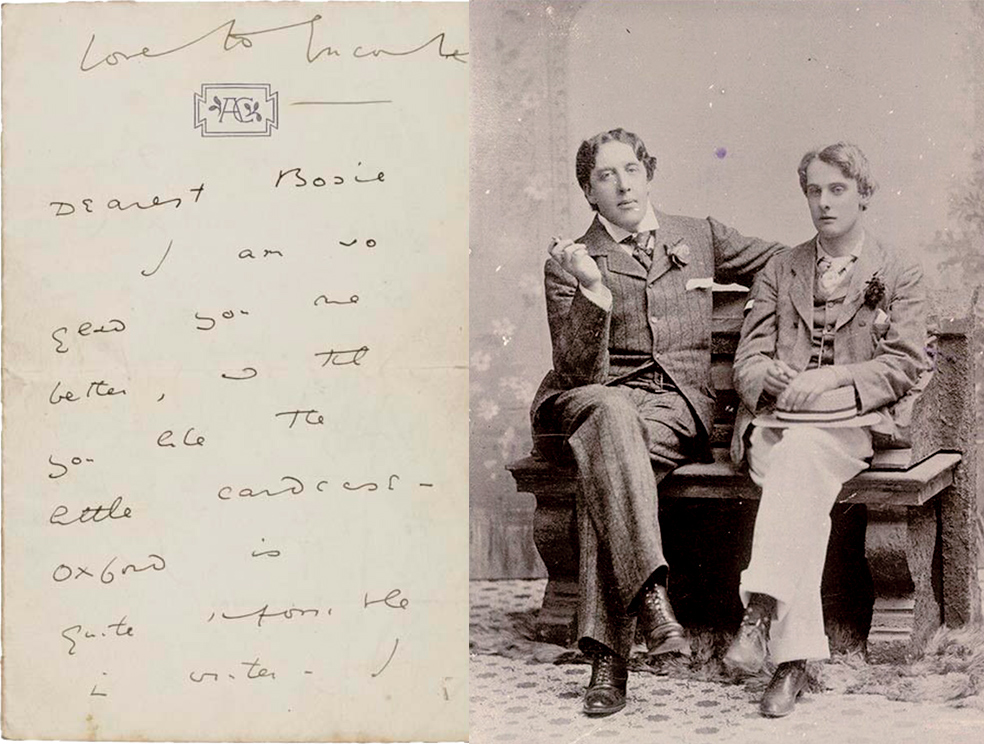 Love to Encombe
AC
Dearest Bosie
I am so
glad you are
better, & that
you like the
little cardcase -
Oxford is
quite impossible
in winter - I